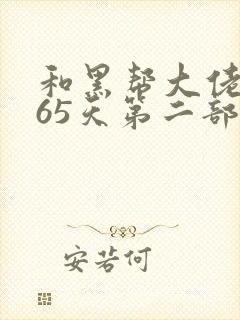 和黑帮大佬
65天第二部
安若何